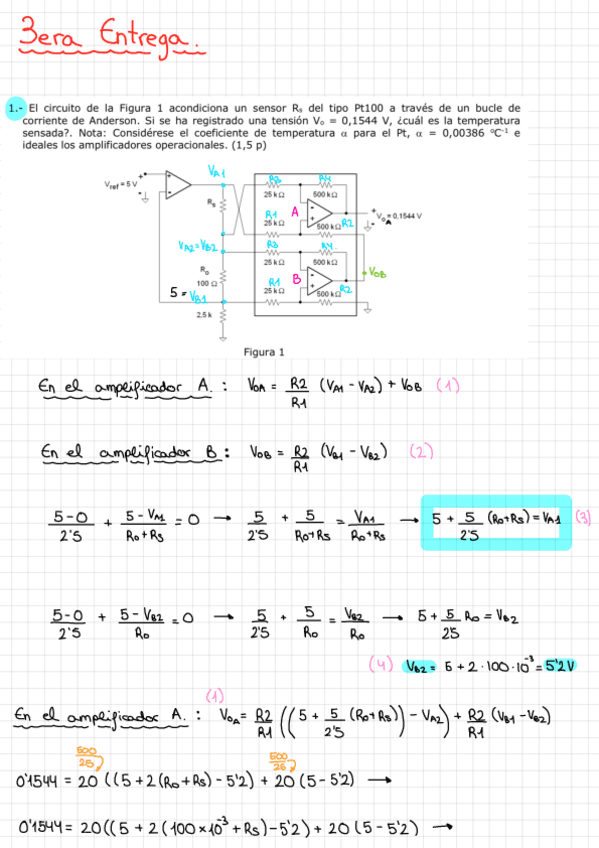 3era Entrega.
1.- El circuito de la Figura 1 acondiciona un sensor Rs del tipo Pt100 a través de un bucle de
corriente de Anderson. Si se ha registrado una tensión Vo = 0,1544 V, ¿cuál es la temperatura
sensada?. Nota: Considérese el coeficiente de temperatura α para el Pt, α = 0,00386 ºC-1 e
ideales los amplificadores operacionales. (1,5 p)
VA1
R3
R4
Vref = 5 V
25 kΩ
500 kΩ
Rs
R1
A
25 kΩ
500 kΩ
R2
VoA = 0,1544 V
VA2=VB2
R3
R4
25 kΩ
500 kΩ
VOB
Ro
100 Ω
R1
B
5 = VB1
25 kΩ
500 kΩ
R2
2.5 k
Figura 1
En el amplificador A. : VOA = R2/R1 (VA1 - VA2) + VOB (1)
En el amplificador B : VOB = R2/R1 (VB1 - VB2) (2)
5-0/2'5 + 5-VA1/Ro+Rs = 0 → 5/2'5 + 5/Ro+Rs = VA1/Ro+Rs → 5 + 5/2'5 (Ro+Rs) = VA1 (3)
5-0/2'5 + 5-VB2/Ro = 0 → 5/2'5 + 5/Ro = VB2/Ro → 5 + 5/2'5 Ro = VB2
(4) VB2 = 5 + 2 · 100 · 10-3 = 5'2 V
(1)
En el amplificador A. : VOA = R2/R1 ((5 + 5/2'5 (Ro+Rs)) - VA2) + R2/R1 (VB1 - VB2)
500/25
500/25
0'1544 = 20 ((5 + 2(Ro + Rs) - 5'2) + 20 (5 - 5'2) →
0'1544 = 20((5 + 2(100×10-3 + Rs) - 5'2) + 20 (5 - 5'2) →